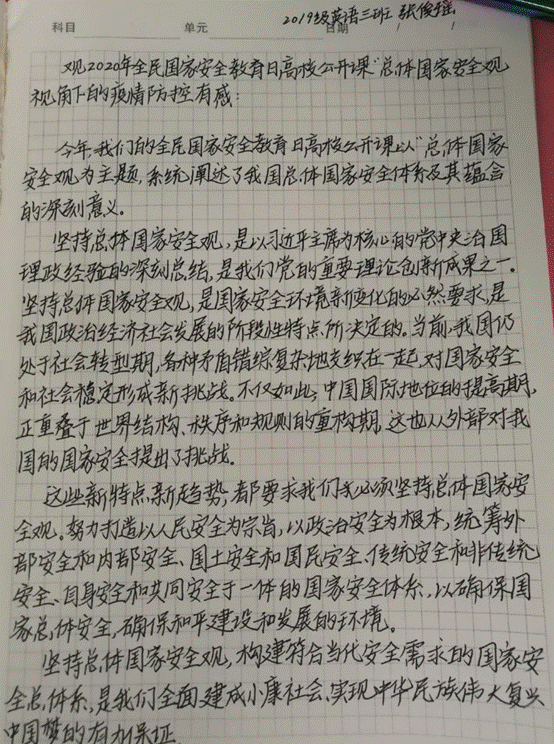 2019级英语三班 张俊瑶
科目 单元 日期
观2020年全民国家安全教育日高校公开课"总体国家安全观
视角下的疫情防控有感:
今年,我们的全民国家安全教育日高校公开课以"总体国家
安全观为主题,系统阐述了我国总体国家安全体系及其蕴含
的深刻意义。
坚持总体国家安全观,是以习近平主席为核心的党中央治国
理政经验的深刻总结,是我们党的重要理论创新成果之一。
坚持总体国家安全观,是国家安全环境新变化的必然要求,是
我国政治经济社会发展的阶段性特点所决定的。当前,我国仍
处于社会转型期,各种矛盾错综复杂地交织在一起,对国家安全
和社会稳定形成新挑战。不仅如此,中国国际地位的提高期,
正重叠于世界结构、秩序和规则的重构期,这也从外部对我
国的国家安全提出了挑战。
这些新特点,新趋势,都要求我们必须坚持总体国家安
全观。努力打造以人民安全为宗旨,以政治安全为根本,统筹外
部安全和内部安全、国土安全和国民安全、传统安全和非传统
安全、自身安全和共同安全于一体的国家安全体系,以确保国
家总体安全,确保和平建设和发展的环境。
坚持总体国家安全观,构建符合当代安全需求的国家安
全总体系,是我们全面建成小康社会、实现中华民族伟大复兴
中国梦的有力保证